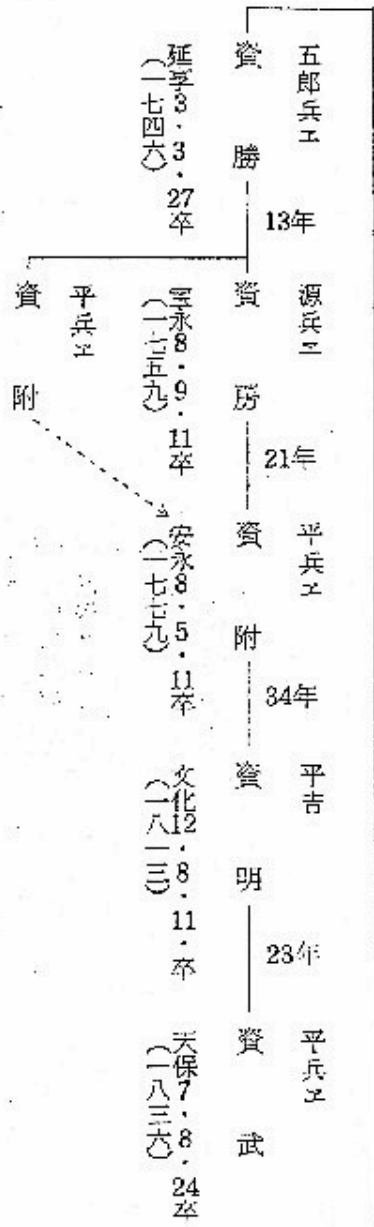 五郎兵ヱ
資勝
延享3・3・27卒
(一七四六)
13年
源兵ヱ
資房
宝永8・9・11卒
(一七五九)
平兵ヱ
資附
21年
平兵ヱ
資附
安永8・5・11卒
(一七七九)
34年
平吉
資明
文化12・8・11・卒
(一八一三)
23年
平兵ヱ
資武
天保7・8・24卒
(一八三六)